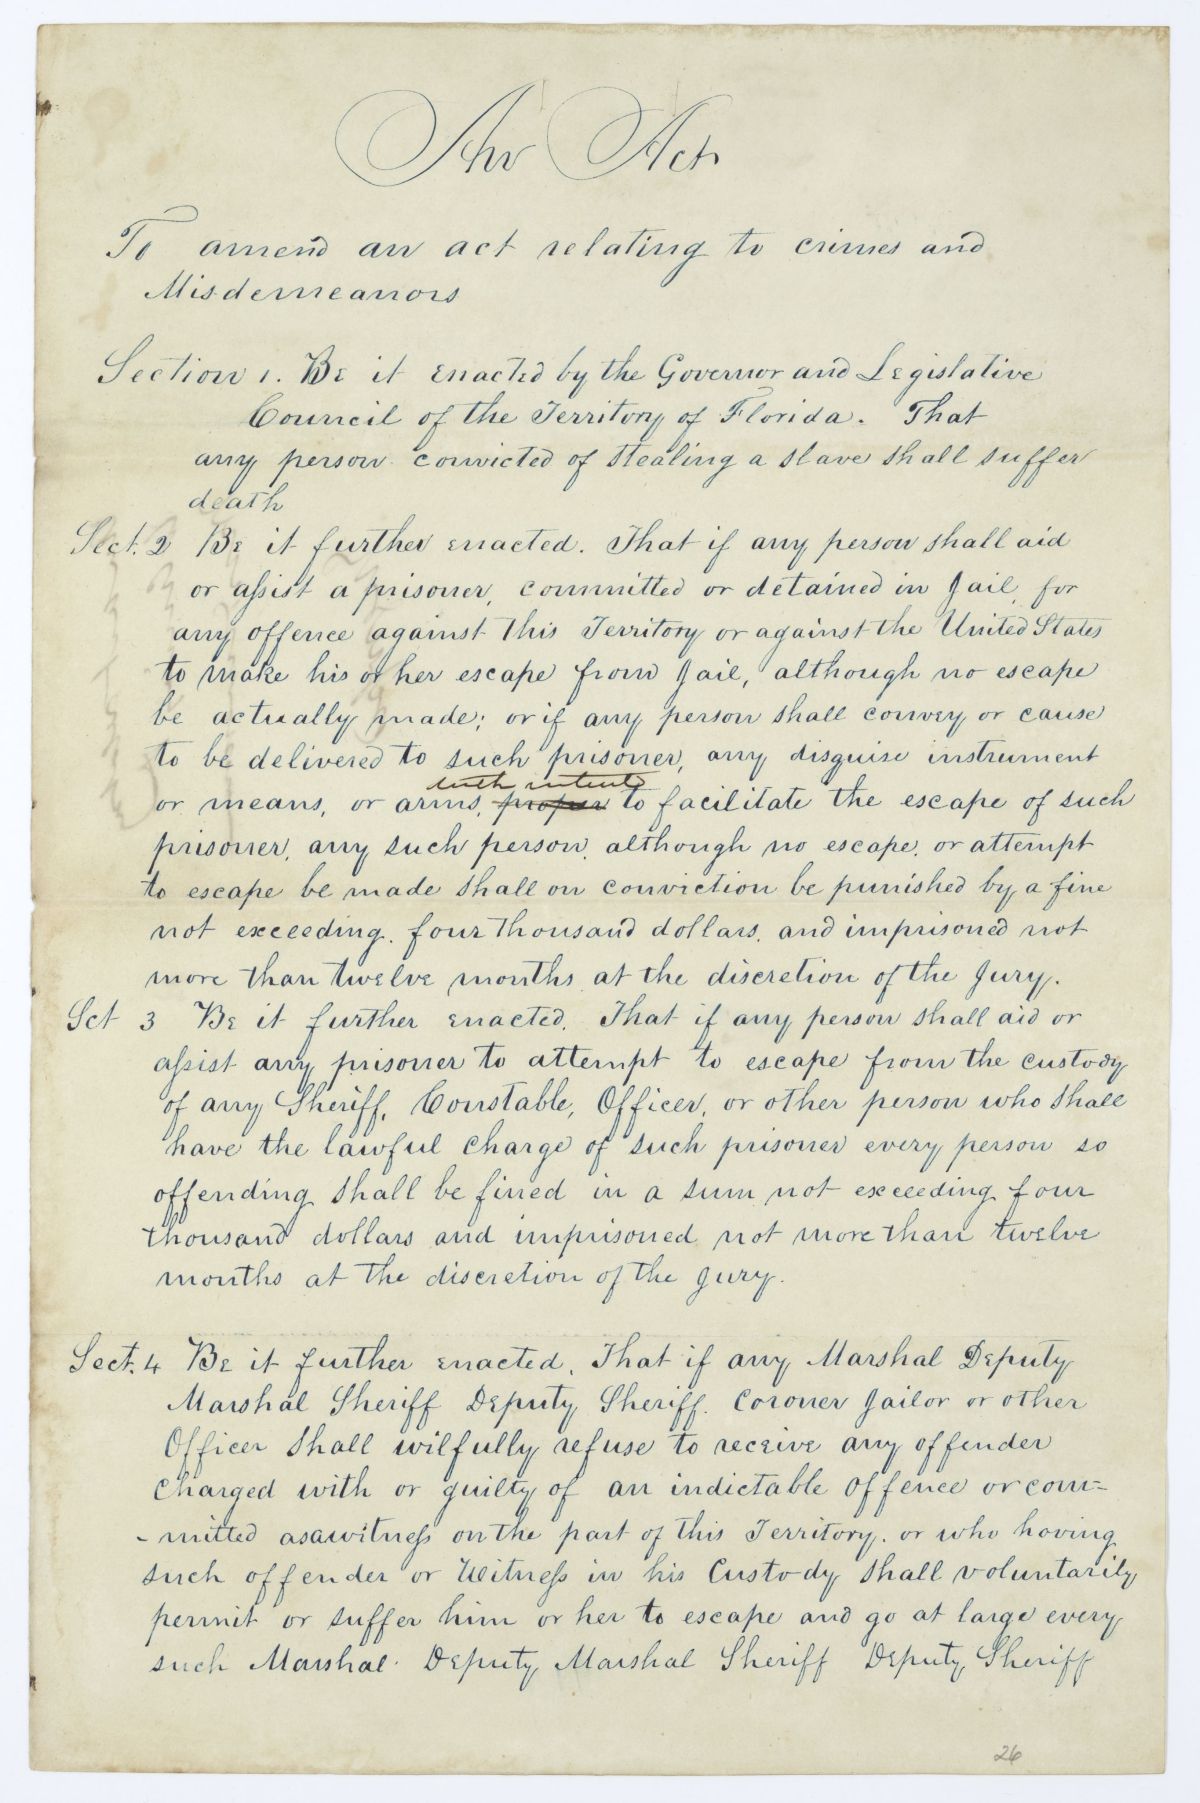 An Act
To amend an act relating to crimes and
Misdemeanors
Section 1. Be it enacted by the Governor and Legislative
Council of the Territory of Florida. That
any person convicted of stealing a slave shall suffer
death
Sect. 2 Be it further enacted. That if any person shall aid
or assist a prisoner, committed or detained in Jail, for
any offence against this Territory or against the United States
to make his or her escape from Jail, although no escape
be actually made; or if any person shall convey or cause
to be delivered to such prisoner, any disguise instrument
with intent
or means, or arms, proper to facilitate the escape of such
prisoner, any such person, although no escape, or attempt
to escape be made shall on conviction be punished by a fine
not exceeding. four thousand dollars, and imprisoned not
more than twelve months at the discretion of the Jury.
Sct 3 Be it further enacted, That if any person shall aid or
assist any prisoner to attempt to escape from the custody
of any Sheriff, Constable, Officer, or other person who shall
have the lawful charge of such prisoner every person so
offending shall be fined in a sum not exceeding four
thousand dollars and imprisoned not more than twelve
months at the discretion of the Jury.
Sect. 4 Be it further enacted, That if any Marshal Deputy
Marshal Sheriff Deputy Sheriff. Coroner Jailor or other
Officer shall wilfully refuse to receive any offender
charged with or guilty of an indictable offence or com=
-mitted as a witness on the part of this Territory. or who having
such offender or Witness in his Custody shall voluntarily
permit or suffer him or her to escape and go at large every
such Marshal. Deputy Marshal Sheriff Deputy Sheriff
26